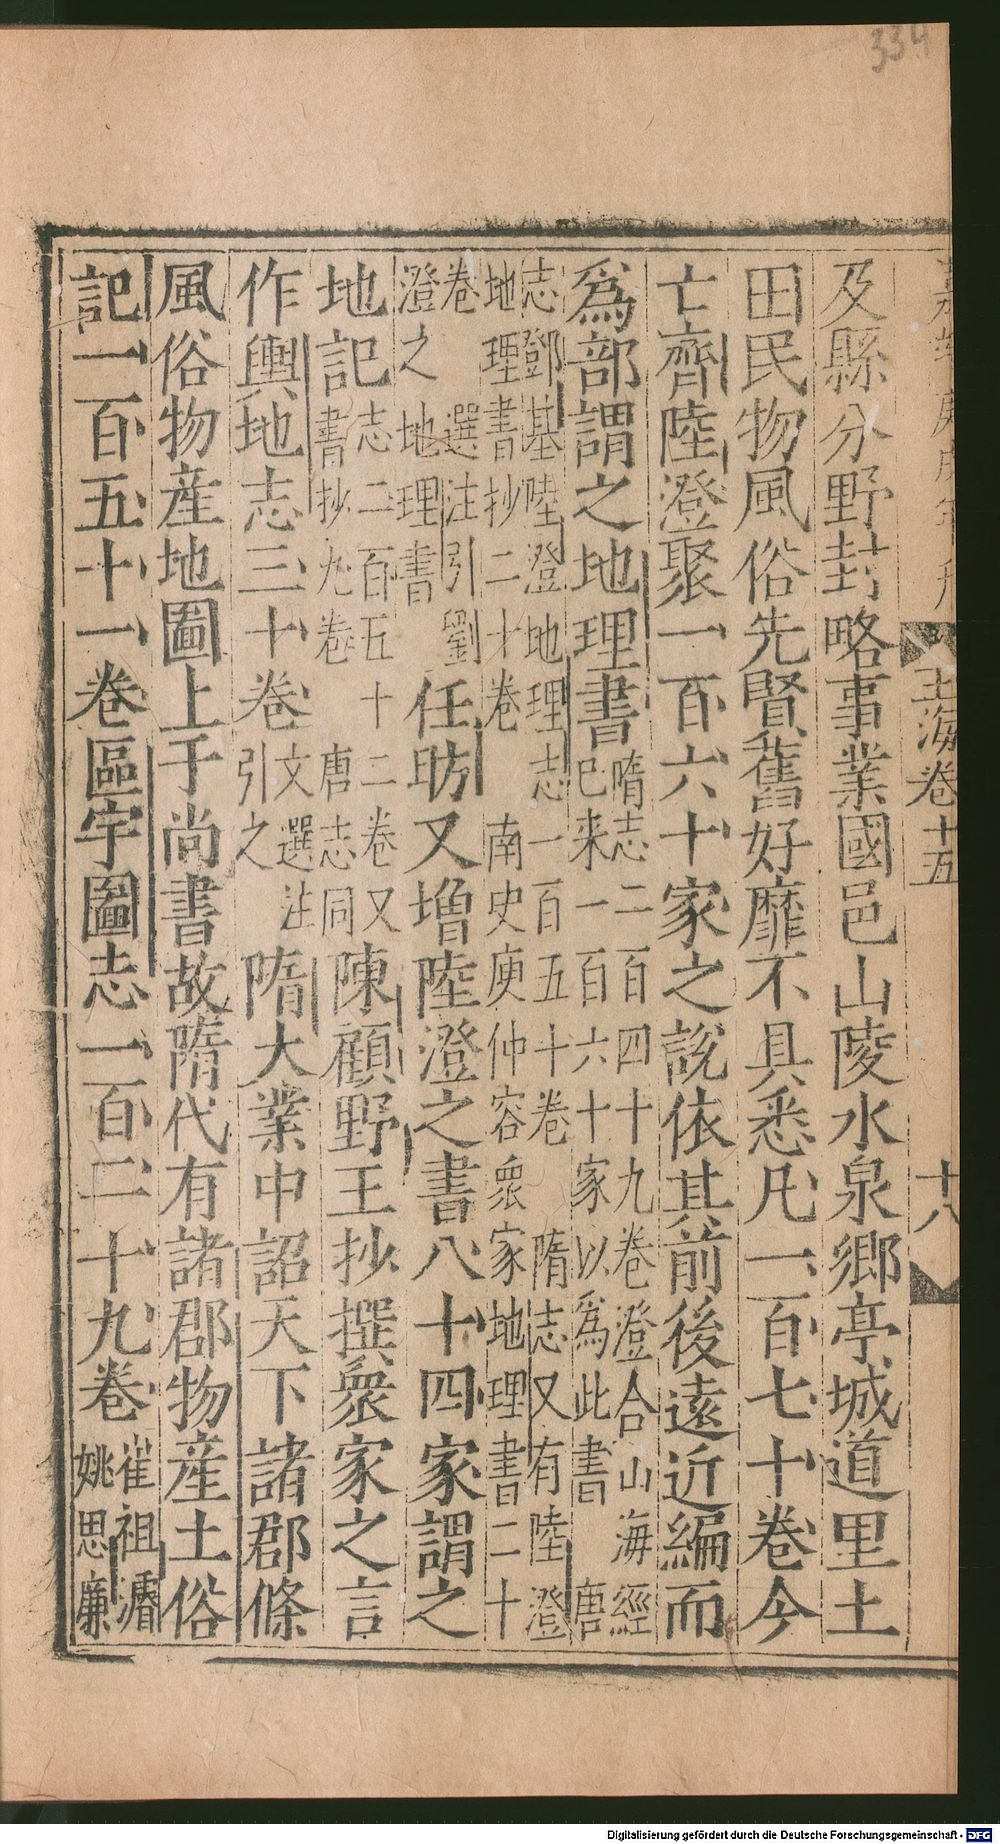 334
玉海卷十五
十八
及縣分野封略事業國邑山陵水泉鄉亭城道里土
田民物風俗先賢舊好靡不具悉凡一百七十卷今
亡齊陸澄聚一百六十家之說依其前後遠近編而
爲部謂之地理書隋志二百四十九卷澄合山海經
已来一百六十家以爲此書 唐
志鄧基陸澄地理志一百五十卷 隋志又有陸澄
地理書抄二十卷 南史庾仲容衆家地理書二十
卷 選注引劉
澄之地理書任昉又增陸澄之書八十四家謂之
地記志二百五十二卷又
書抄九卷 唐志同陳顧野王抄撰衆家之言
作輿地志三十卷文選注
引之隋大業中詔天下諸郡條
風俗物産地圖上于尚書故隋代有諸郡物産土俗
記一百五十一卷區宇圖志一百二十九卷崔祖濬
姚思廉
Digitalisierung gefördert durch die Deutsche Forschungsgemeinschaft - DFG